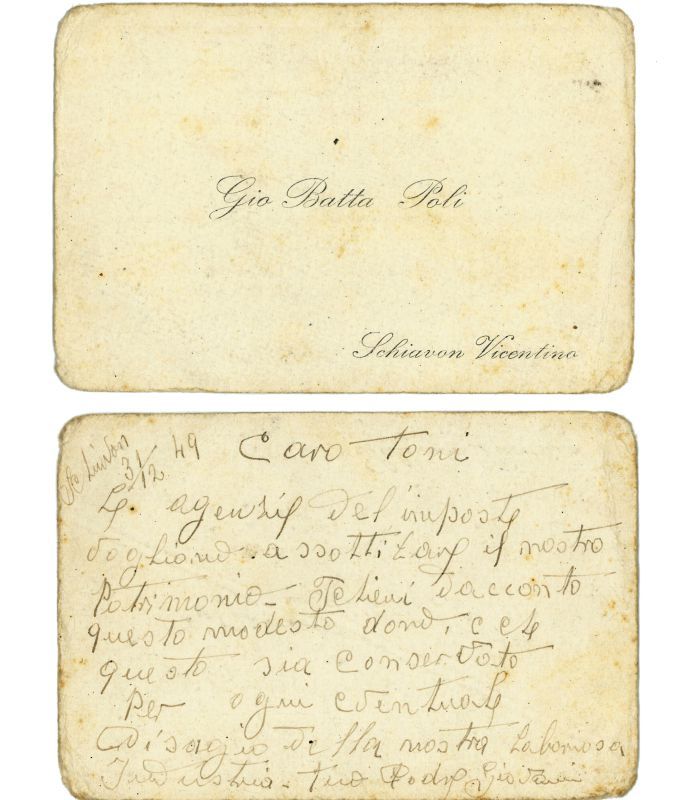 Gio Batta Poli
Schiavon Vicentino
3/12 49
Caro Toni
Le agenzie del imposte
vogliono assottizare il nostro
Patrimonio - Tetieni d'acconto
questo modesto dono, e che
questo sia conservato
Per ogni eventuale
Disagio della nostra Laboriosa
Industria - tuo Padre Giovanni